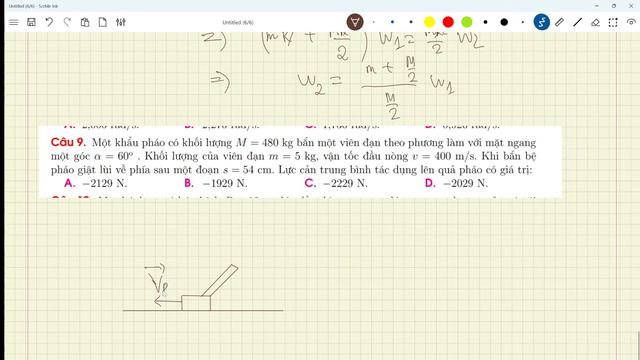 Untitled (6/6) - Scribble Ink
Untitled (6/6)
=) (mR + /2) W₁ = /2 W₂
=) W₂ = (m + M/2) / (M/2) W₁
A. 2,000 rad/s. B. 2,270 rad/s. C. D.
Câu 9. Một khẩu pháo có khối lượng M = 480 kg bắn một viên đạn theo phương làm với mặt ngang
một góc α = 60° . Khối lượng của viên đạn m = 5 kg, vận tốc đầu nòng v = 400 m/s. Khi bắn bệ
pháo giật lùi về phía sau một đoạn s = 54 cm. Lực cản trung bình tác dụng lên quả pháo có giá trị:
A. −2129 N. B. −1929 N. C. −2229 N. D. −2029 N.
V